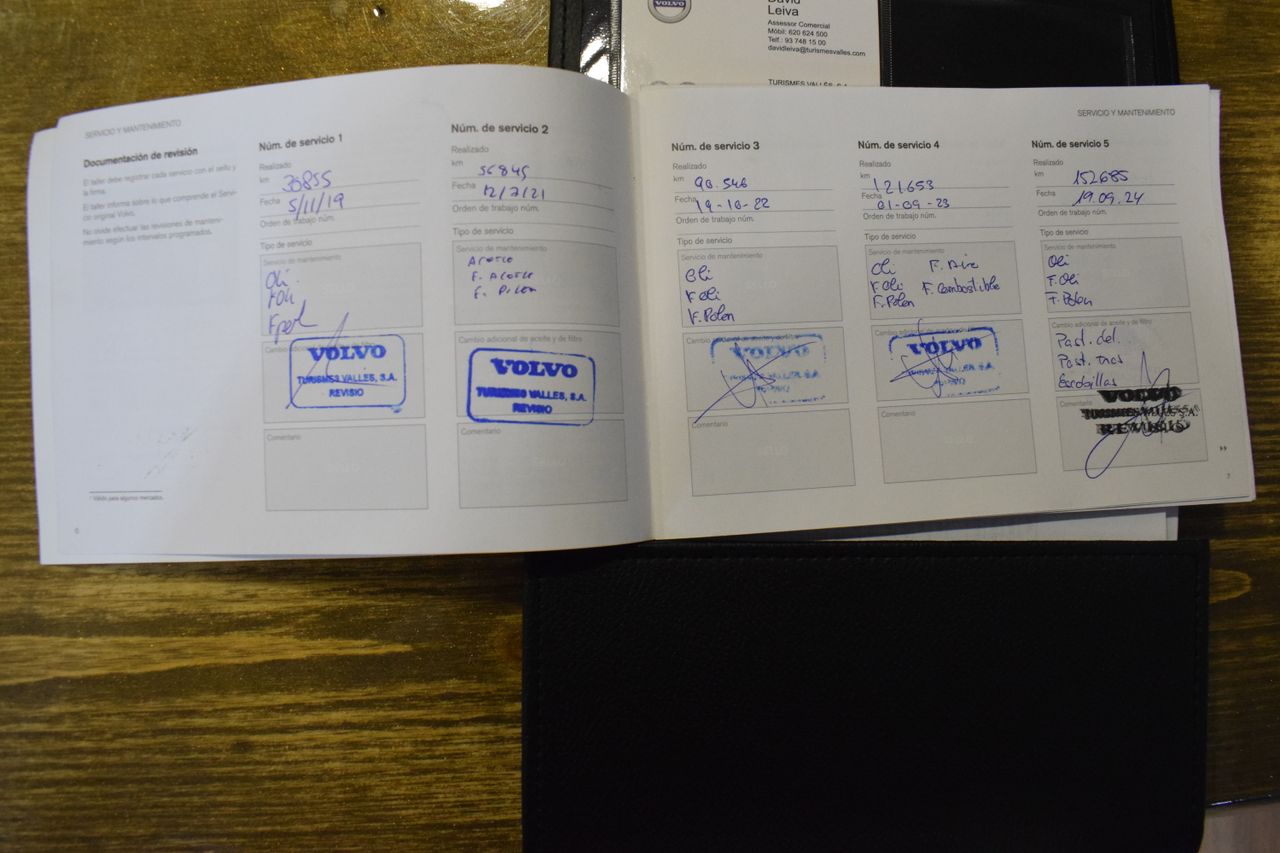 VOLVO
David
Leiva
Assessor Comercial
Mòbil: 620 624 500
Telf.: 93 748 15 00
davidleiva@turismesvalles.com
TURISMES VALLÈS, S.A.
SERVICIO Y MANTENIMIENTO
Documentación de revisión
El taller debe registrar cada servicio con el sello y
la firma.
El taller informa sobre lo que comprende el Servi-
cio original Volvo.
No olvide efectuar las revisiones de manteni-
miento según los intervalos programados.
* Válido para algunos mercados.
6
Núm. de servicio 1
Realizado
km 30855
Fecha 5/11/19
Orden de trabajo núm.
Tipo de servicio
Servicio de mantenimiento
Oli
F Oli
Cambio adicional de aceite y de filtro
VOLVO
TURISMES VALLES, S.A.
REVISIO
Comentario
Núm. de servicio 2
Realizado
km 56845
Fecha 12/7/21
Orden de trabajo núm.
Tipo de servicio
Servicio de mantenimiento
Aceite
F. Aceite
F. Polen
Cambio adicional de aceite y de filtro
VOLVO
TURISMES VALLES, S.A.
REVISIO
Comentario
SERVICIO Y MANTENIMIENTO
Núm. de servicio 3
Realizado
km 90.546
Fecha 19-10-22
Orden de trabajo núm.
Tipo de servicio
Servicio de mantenimiento
Oli
F Oli
F. Polen
Cambio adicional de aceite y de filtro
VOLVO
Comentario
Núm. de servicio 4
Realizado
km 121653
Fecha 01-09-23
Orden de trabajo núm.
Tipo de servicio
Servicio de mantenimiento
Oli F. Aire
F Oli F. Combustible
F. Polen
Cambio adicional de aceite y de filtro
VOLVO
Comentario
Núm. de servicio 5
Realizado
km 152685
Fecha 19.09.24
Orden de trabajo núm.
Tipo de servicio
Servicio de mantenimiento
Oli
F. Oli
F. Polen
Cambio adicional de aceite y de filtro
Past. del.
Past. tras
Escobillas
Comentario
VOLVO
TURISMES VALLES S.A.
REVISIO
7